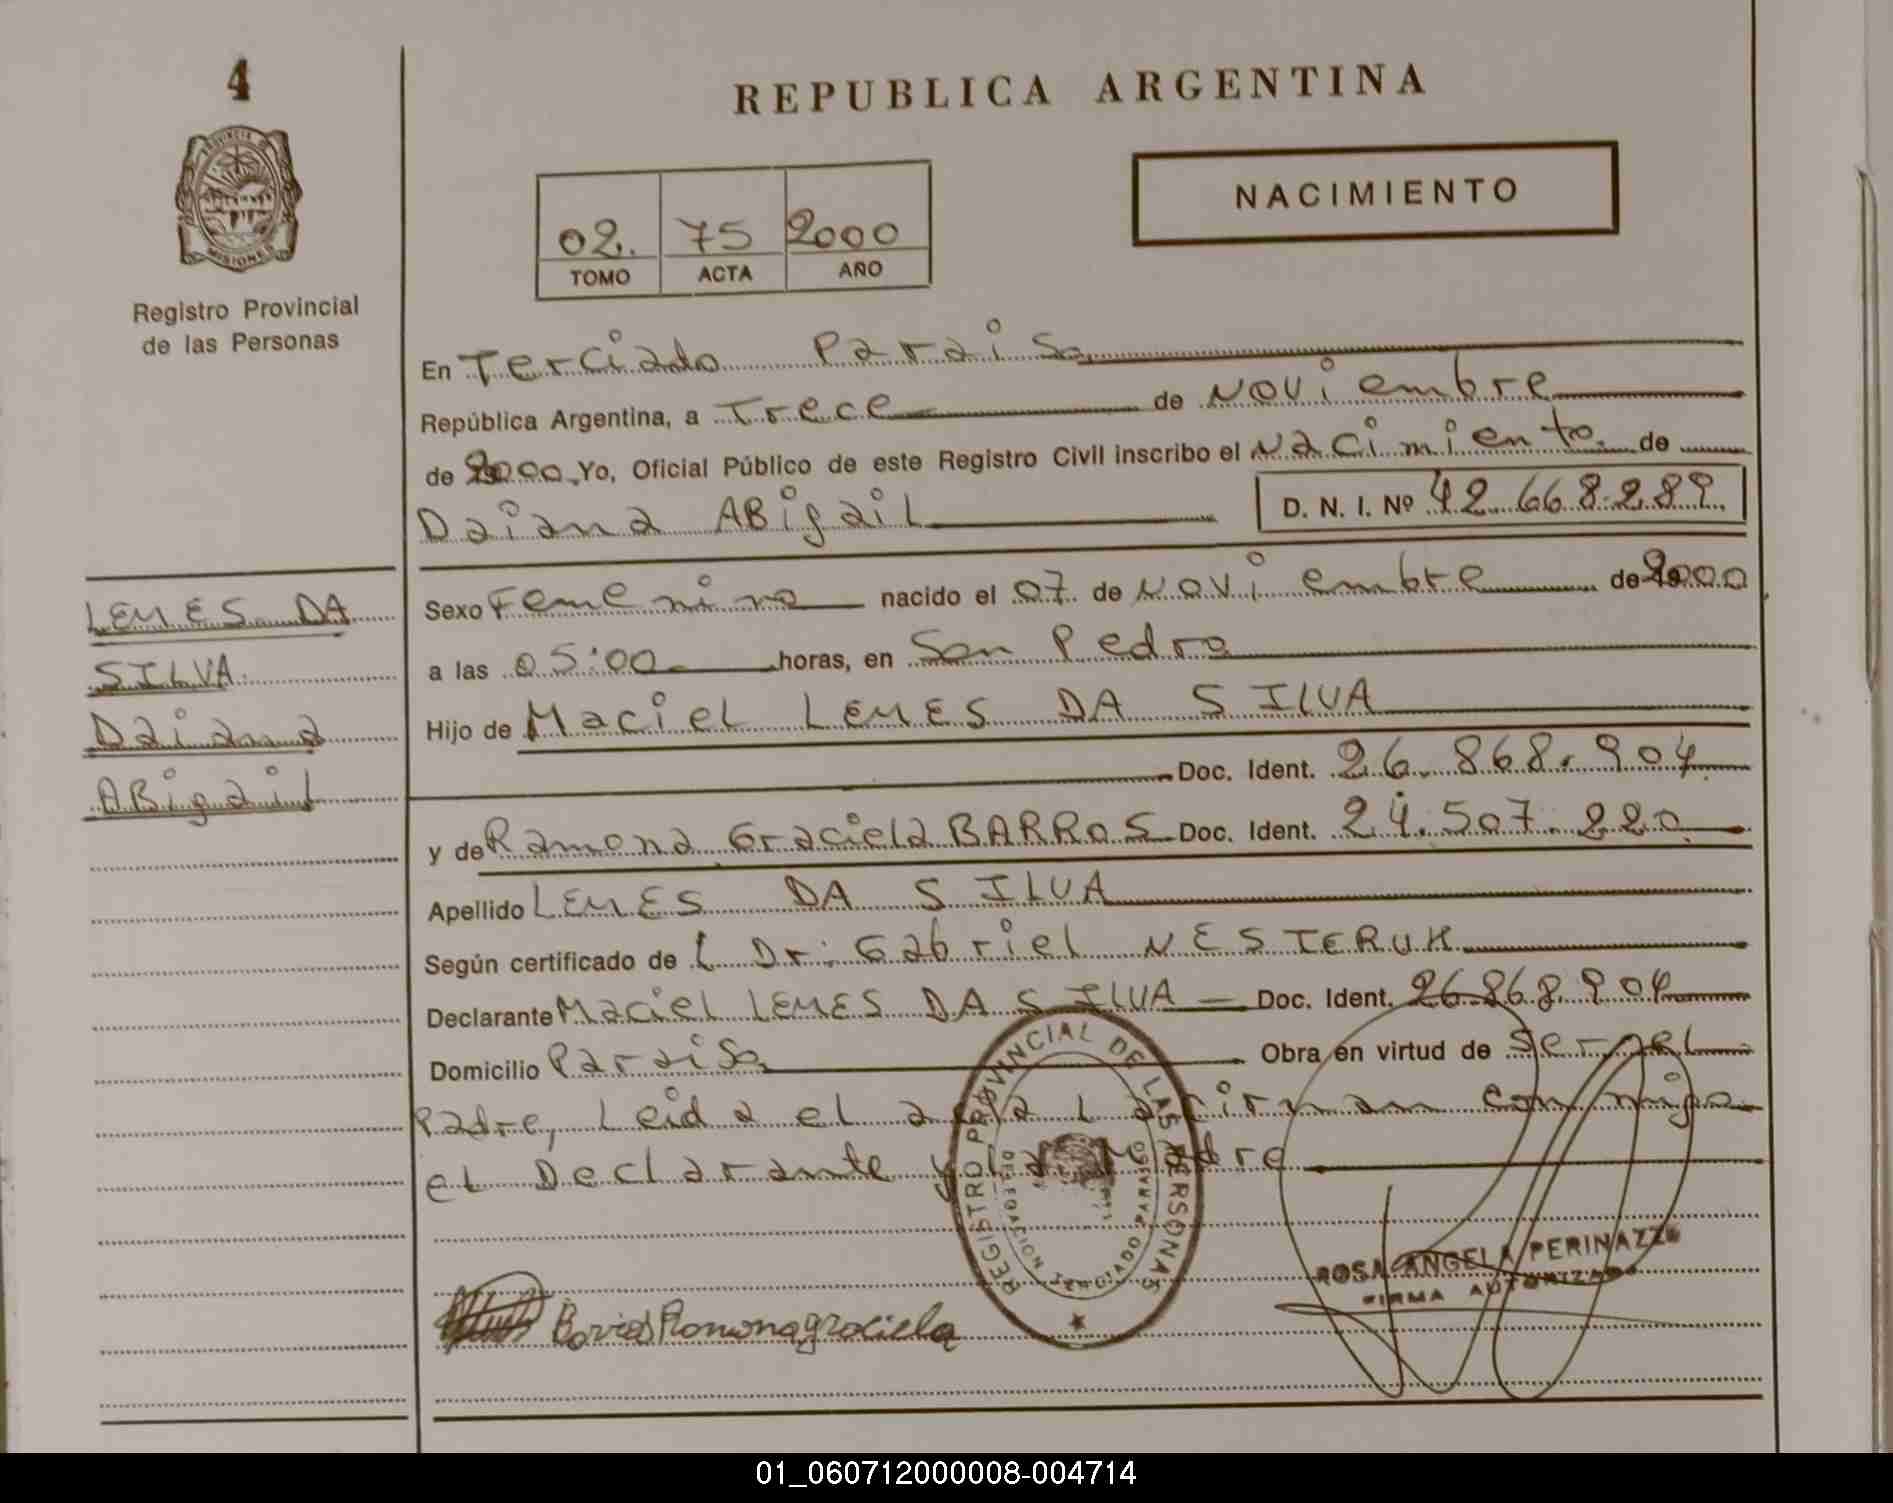 4
REPUBLICA ARGENTINA
PROVINCIA DE
MISIONES
Registro Provincial
de las Personas
NACIMIENTO
02. 75 2000
TOMO ACTA AÑO
En Terciado Paraiso
República Argentina, a Trece de Noviembre
de 2000. Yo, Oficial Público de este Registro Civil inscribo el Nacimiento de
Daiana ABigail D. N. I. Nº 42.668.289.
LEMES DA
SILVA.
Daiana
ABigail
Sexo Femenino nacido el 07 de Noviembre de 2000
a las 05:00 horas, en San Pedro
Hijo de Maciel LEMES DA SILVA
Doc. Ident. 26.868.904
y de Ramona Graciela BARROS Doc. Ident. 24.507.220
Apellido LEMES DA SILVA
Según certificado de L Dr. Gabriel NESTERUK
Declarante Maciel LEMES DA SILVA Doc. Ident. 26.868.904
Domicilio Paraiso Obra en virtud de ser el
Padre, Leida el acta L a firman conmigo
el Declarante y La Madre
REGISTRO PROVINCIAL DE LAS PERSONAS
DELEGACION TERCIADO PARAISO
Ramonagraciela
ROSA ANGELA PERINAZZO
FIRMA AUTORIZADA
01_060712000008-004714